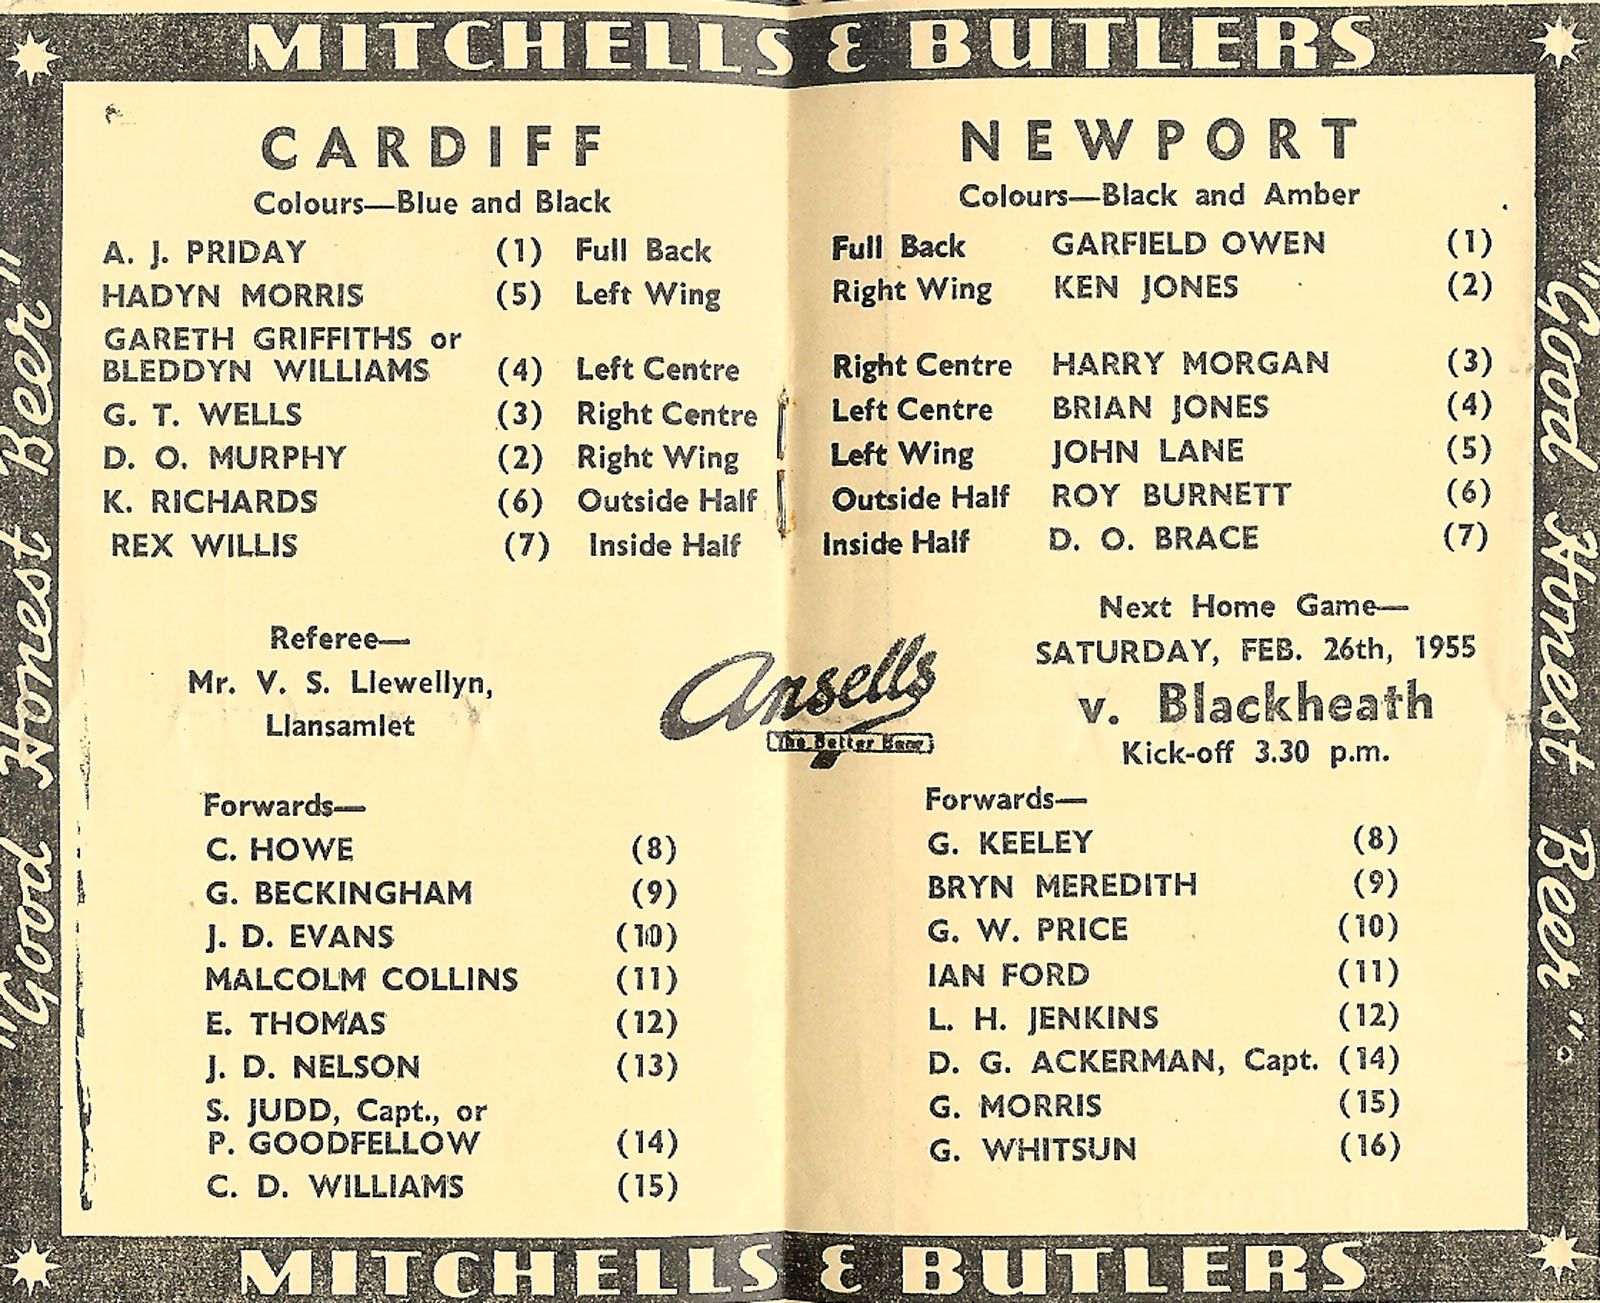 MITCHELLS & BUTLERS
"Good Honest Beer"
CARDIFF
Colours—Blue and Black
A. J. PRIDAY (1) Full Back
HADYN MORRIS (5) Left Wing
GARETH GRIFFITHS or
BLEDDYN WILLIAMS (4) Left Centre
G. T. WELLS (3) Right Centre
D. O. MURPHY (2) Right Wing
K. RICHARDS (6) Outside Half
REX WILLIS (7) Inside Half
Referee—
Mr. V. S. Llewellyn,
Llansamlet
Forwards—
C. HOWE (8)
G. BECKINGHAM (9)
J. D. EVANS (10)
MALCOLM COLLINS (11)
E. THOMAS (12)
J. D. NELSON (13)
S. JUDD, Capt., or
P. GOODFELLOW (14)
C. D. WILLIAMS (15)
Ansells
The Better Beer
NEWPORT
Colours—Black and Amber
Full Back GARFIELD OWEN (1)
Right Wing KEN JONES (2)
Right Centre HARRY MORGAN (3)
Left Centre BRIAN JONES (4)
Left Wing JOHN LANE (5)
Outside Half ROY BURNETT (6)
Inside Half D. O. BRACE (7)
Next Home Game—
SATURDAY, FEB. 26th, 1955
v. Blackheath
Kick-off 3.30 p.m.
Forwards—
G. KEELEY (8)
BRYN MEREDITH (9)
G. W. PRICE (10)
IAN FORD (11)
L. H. JENKINS (12)
D. G. ACKERMAN, Capt. (14)
G. MORRIS (15)
G. WHITSUN (16)
"Good Honest Beer".
MITCHELLS & BUTLERS